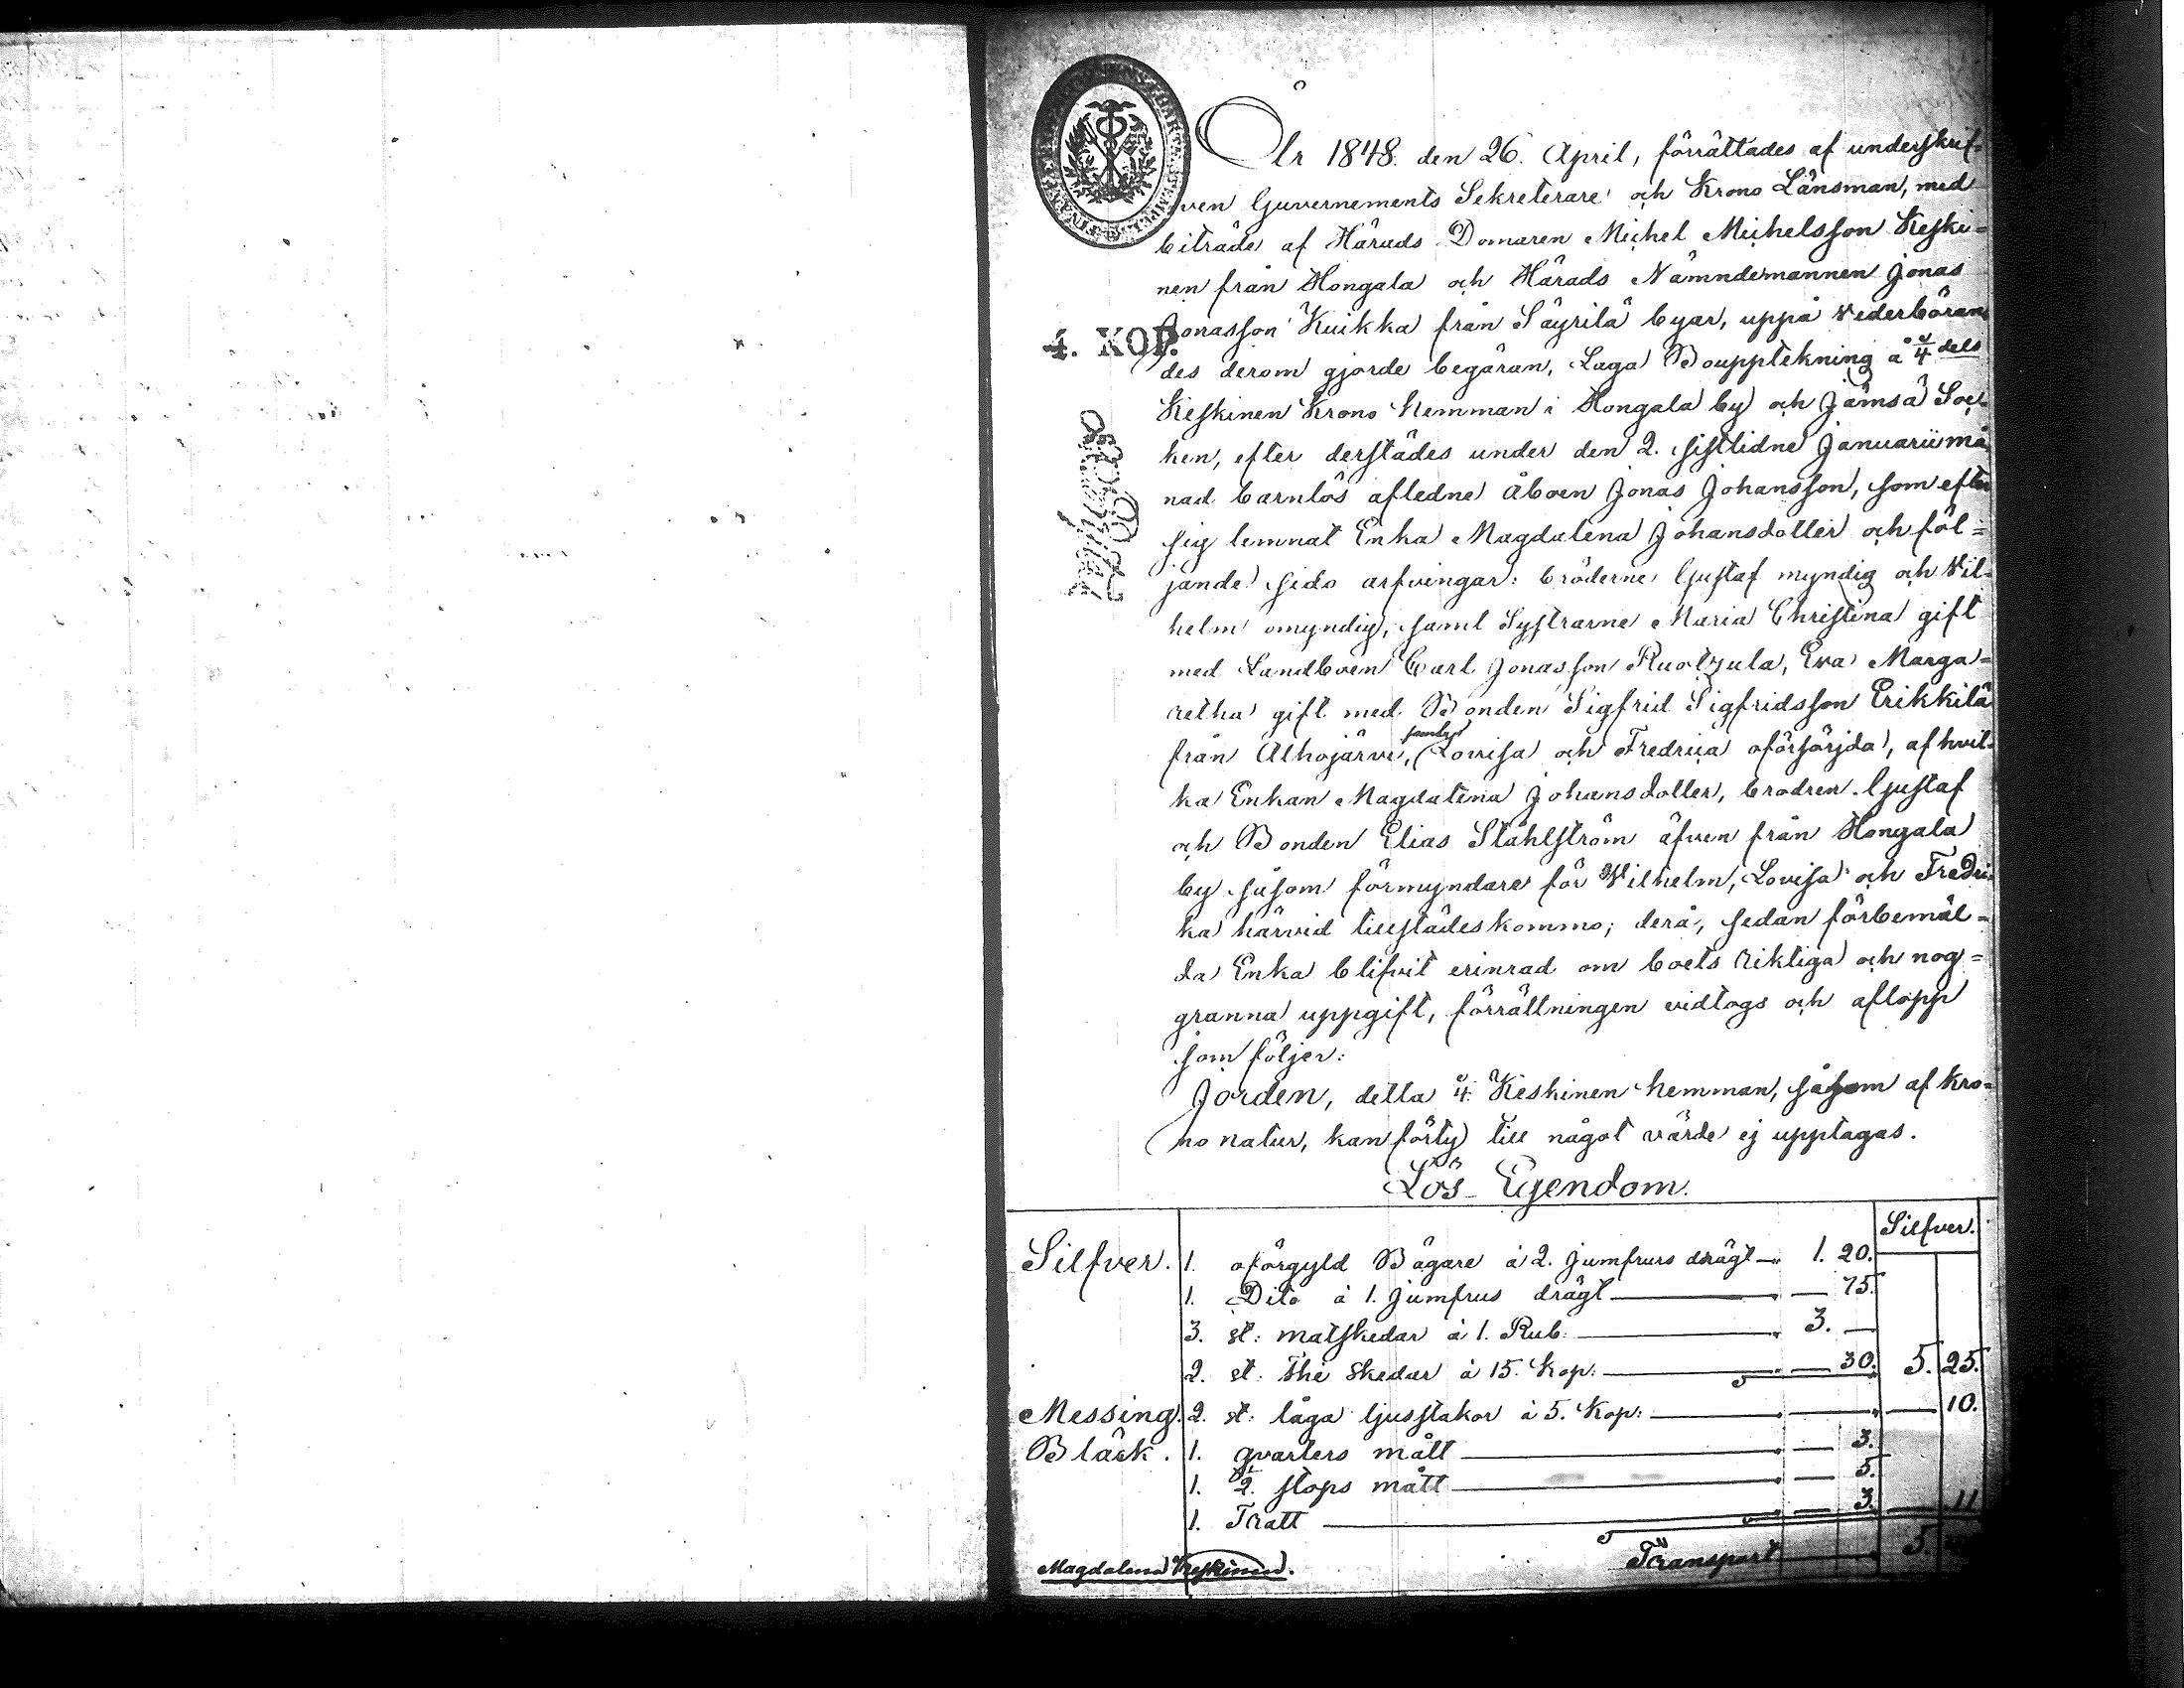 År 1848. den 26. April, förrättades af underskrif-
ven Guvernements Sekreterare och Krono Länsman, med
biträde af Härads Domaren Michel Michelsson Keski=
nen från Hongala och Härads Nämndemannen Jonas
Jonasson Kuikka från Säyrilä byar, uppå Vederböran
4. KOP.
des derom gjorde begäran, Laga Bouppteckning å 1/4 dels
Keskinen Krono hemman i Hongala by och Jämsä Soc-
ken, efter derstädes under den 2. sistlidne Januarii må
nad barnlös afledne åboen Jonas Johansson, som efter
sig lemnat Enka Magdalena Johansdotter och föl=
jande sido arfvingar: bröderne Gustaf myndig och Vil-
helm omyndig, samt Systrarne Maria Christina gift
med Landboen Carl Jonasson Ruotzula, Eva Marga=
retha gift med Bonden Sigfrid Sigfridsson Erikkilä
från Alhojärvi, samt Lovisa och Fredrica oförsörjda, af hvil-
ka Enkan Magdalena Johansdotter, brodren Gustaf
och Bonden Elias Ståhlström äfven från Hongala
by såsom förmyndare för Wilhelm, Lovisa och Fredri-
ka härvid tillstädeskommo; derå, sedan förbemäl=
da Enka blifvit erinrad om boets riktiga och nog=
granna uppgift, förrättningen vidtogs och aflopp
som följer:
Jorden, detta 1/4 Keskinen hemman, såsom af Kro=
no natur, kan förty till något värde ej upptagas.
Lös Egendom.
Silfver.
Silfver. 1. oförgyld Bägare à 2. jumfrurs drägt 1. 20.
1. Dito à 1. jumfrus drägt — 75.
3. st: matskedar à 1. Rub. 3. —
2. st: The skedar à 15. Kop: — 30. 5. 25.
Messing. 2. st: låga ljusstakar à 5. Kop: — 10.
Bläck. 1. qvarters mått — 3.
1. 1/2. stops mått — 5.
1. Tratt — 3. — 11
Transport 5.
Magdalena Keskinen.